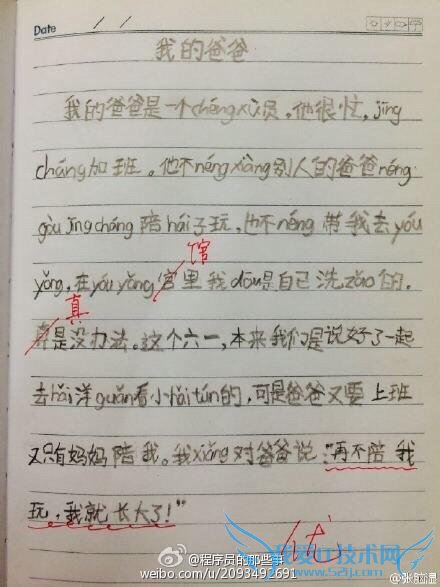 Date / /
我的爸爸
我的爸爸是一个chéngxù员。他很忙，jīng
cháng加班。他不néngxiàng别人的爸爸néng
gòu jīngcháng陪hái子玩，也不néng带我去yóu
yǒng，在yóuyǒng宫里我dōu是自己洗zǎo的。
馆
真
真是没办法。这个六一，本来我们是说好了一起
去hǎi洋guǎn看小hǎitún的，可是爸爸又要上班
又只有妈妈陪我。我xiǎng对爸爸说："再不陪我
玩，我就长大了！"
优
@程序员的那些事
weibo.com/u/2093492691
我要IT技术网
www.52ij.com